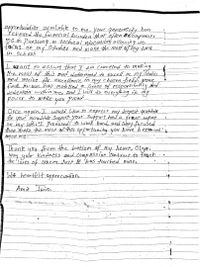 opportunities available to me. Your generosity has
relieved the financial burden that often accompanies
me in pursuing a technical education allowing me
focus on my studies and make the most of my time
in school
I want to assure that I am committed to making
the most of this and determined to excel in my studies
and strive for excellence in my chosen field. Your
has instilled a sense of responsibility and
dedication within me, and I will do everything in my
power to make you proud
Once again I would like to express my deepest gratitude
for your incredible support. Your support had a profound impact
on my life. I promise to work hard and stay focused
and make the most of this opportunity you have
me.
Thank you from the bottom of my heart,
May your kindness and compassion continue to
the lives of others just it has touched mine.
With heartfelt appreciation